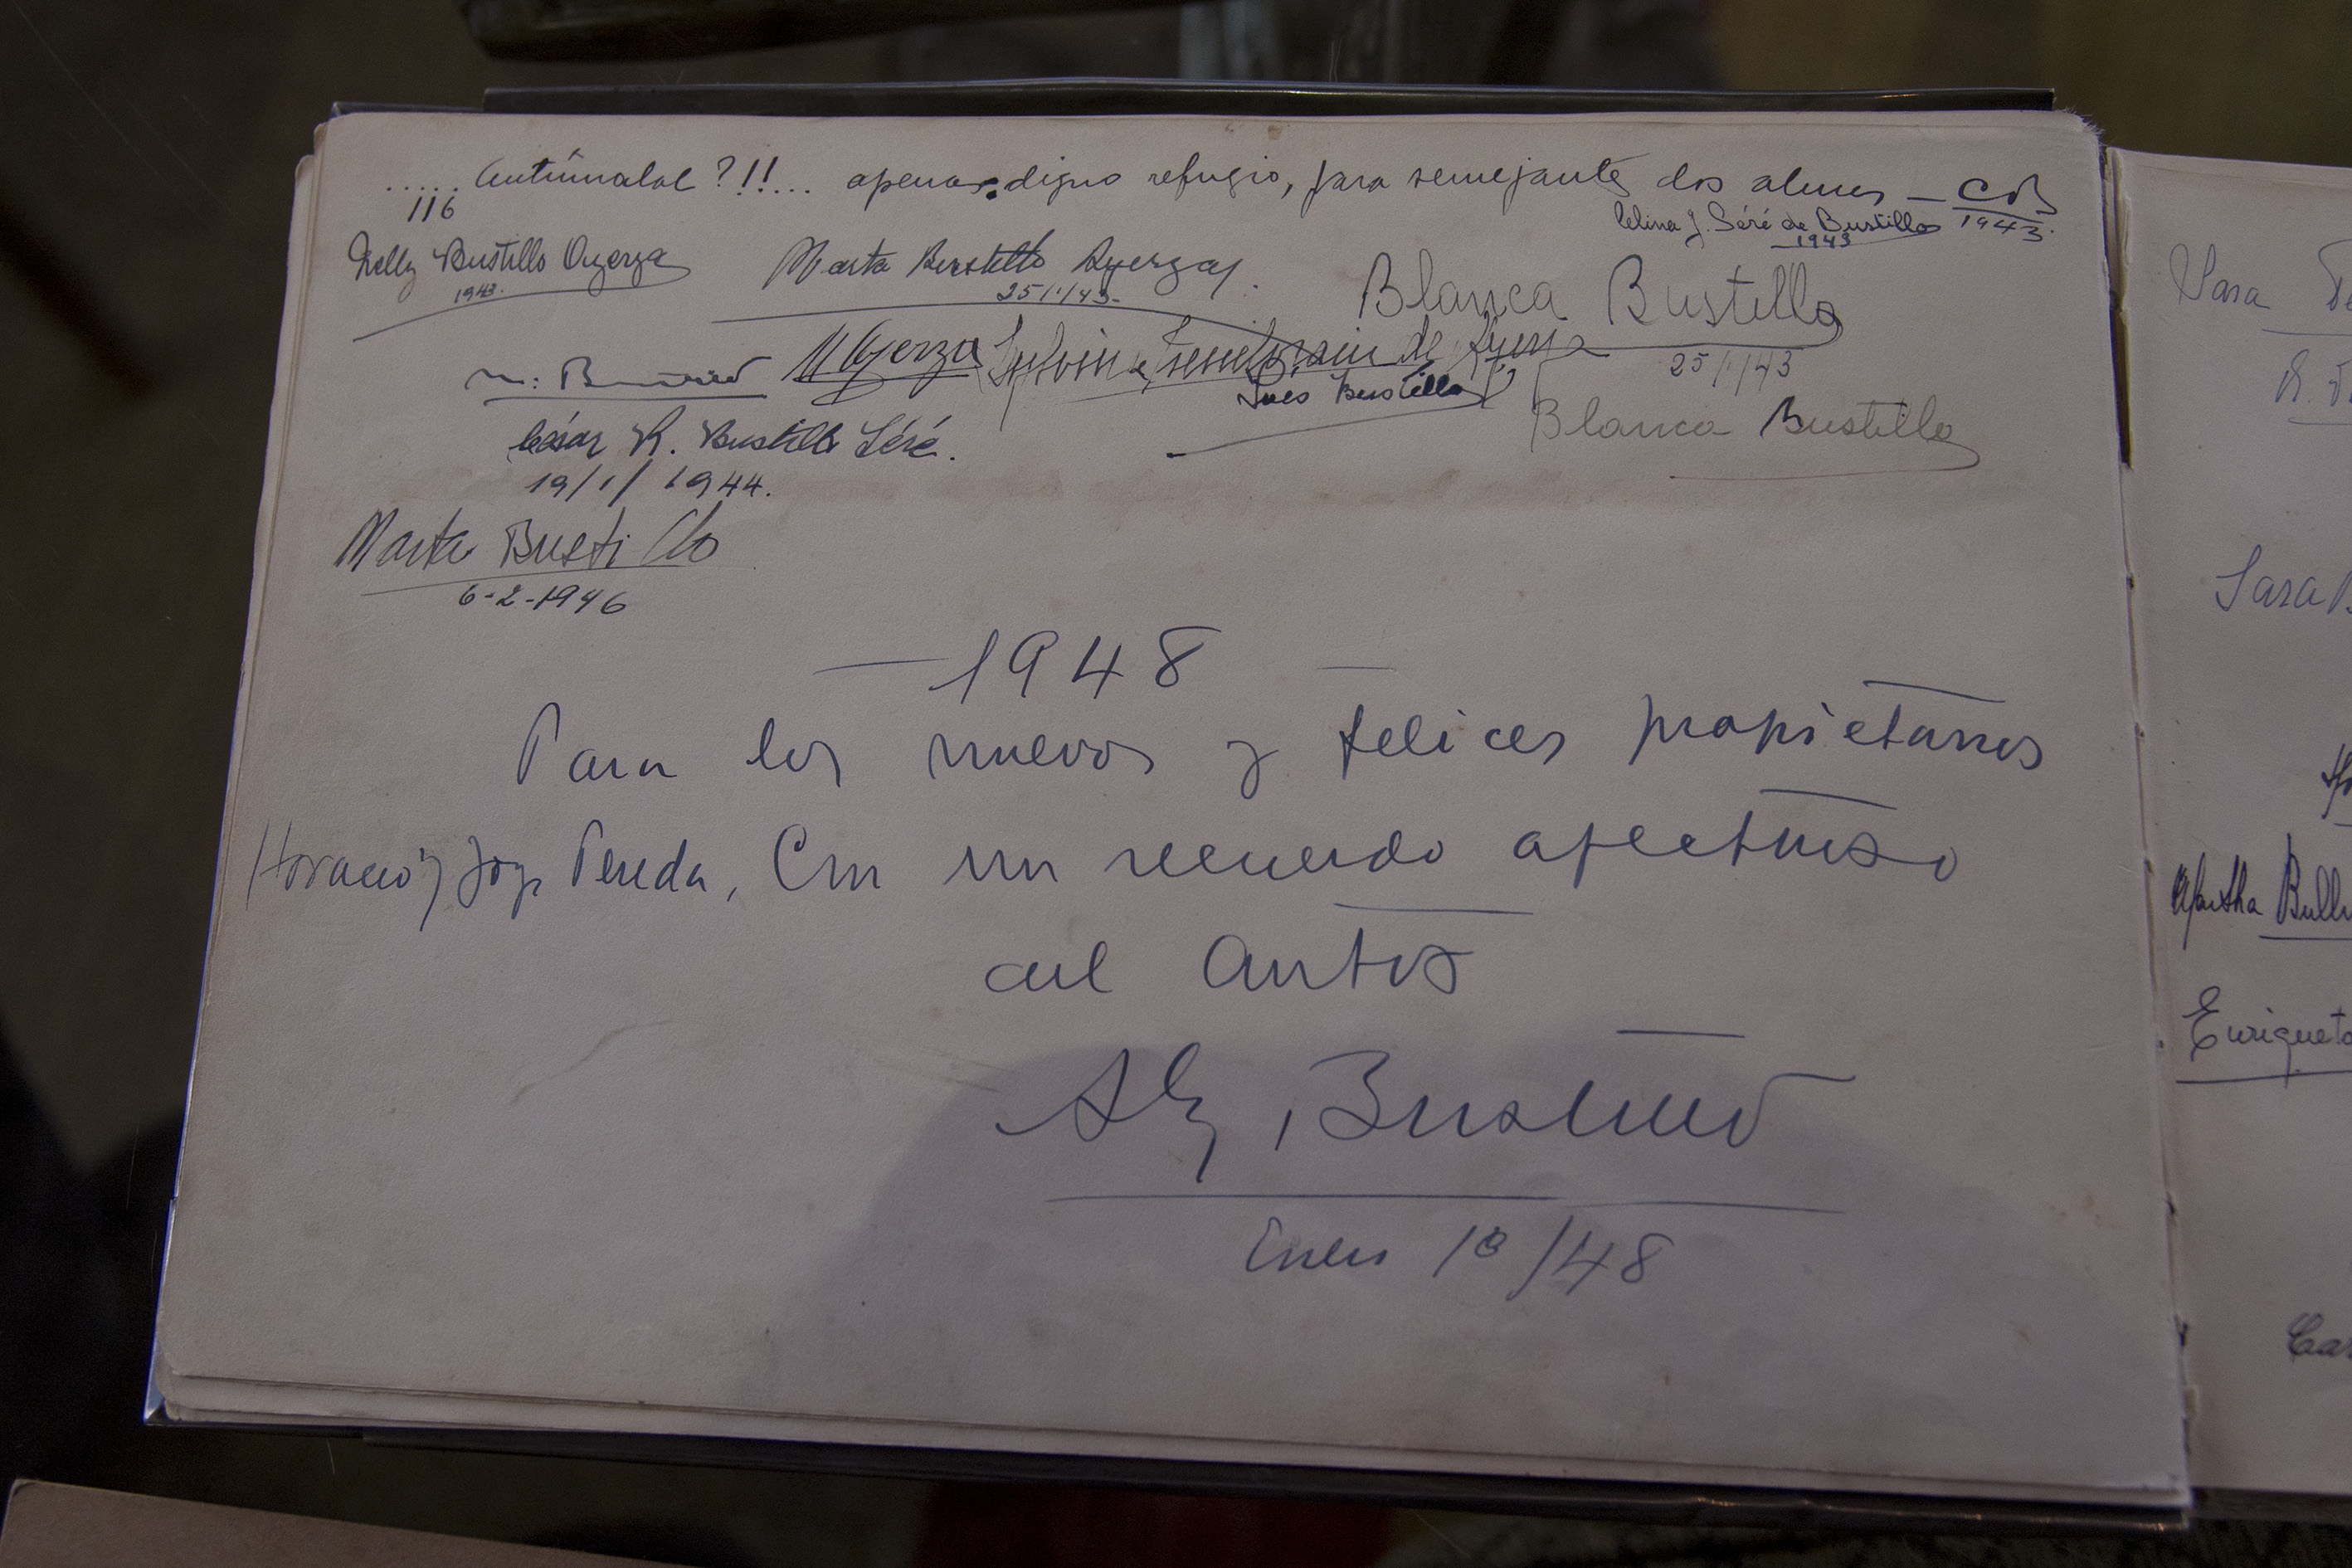 ..... Cantúnalal ?!!... apenas digno refugio, para semejantes dos almas — CB
116
Celina J. Séré de Bustillo
1943.
1943
Nelly Bustillo Ayerza
1943.
Marta Bustillo Ayerza.
25/1/43-
Blanca Bustillo
25/1/43
M Ayerza
de Ayerza
Inés Bustillo
Blanca Bustillo
César R. Bustillo Séré.
19/1/1944.
Marta Bustillo
6-2-1946
— 1948 —
Para los nuevos y felices propietarios
Horacio y Pereda, Con un recuerdo afectuoso
del
Bustillo
Enero 1º/48
Sara
Sara B
Martha Bull
Enriqueta
Car